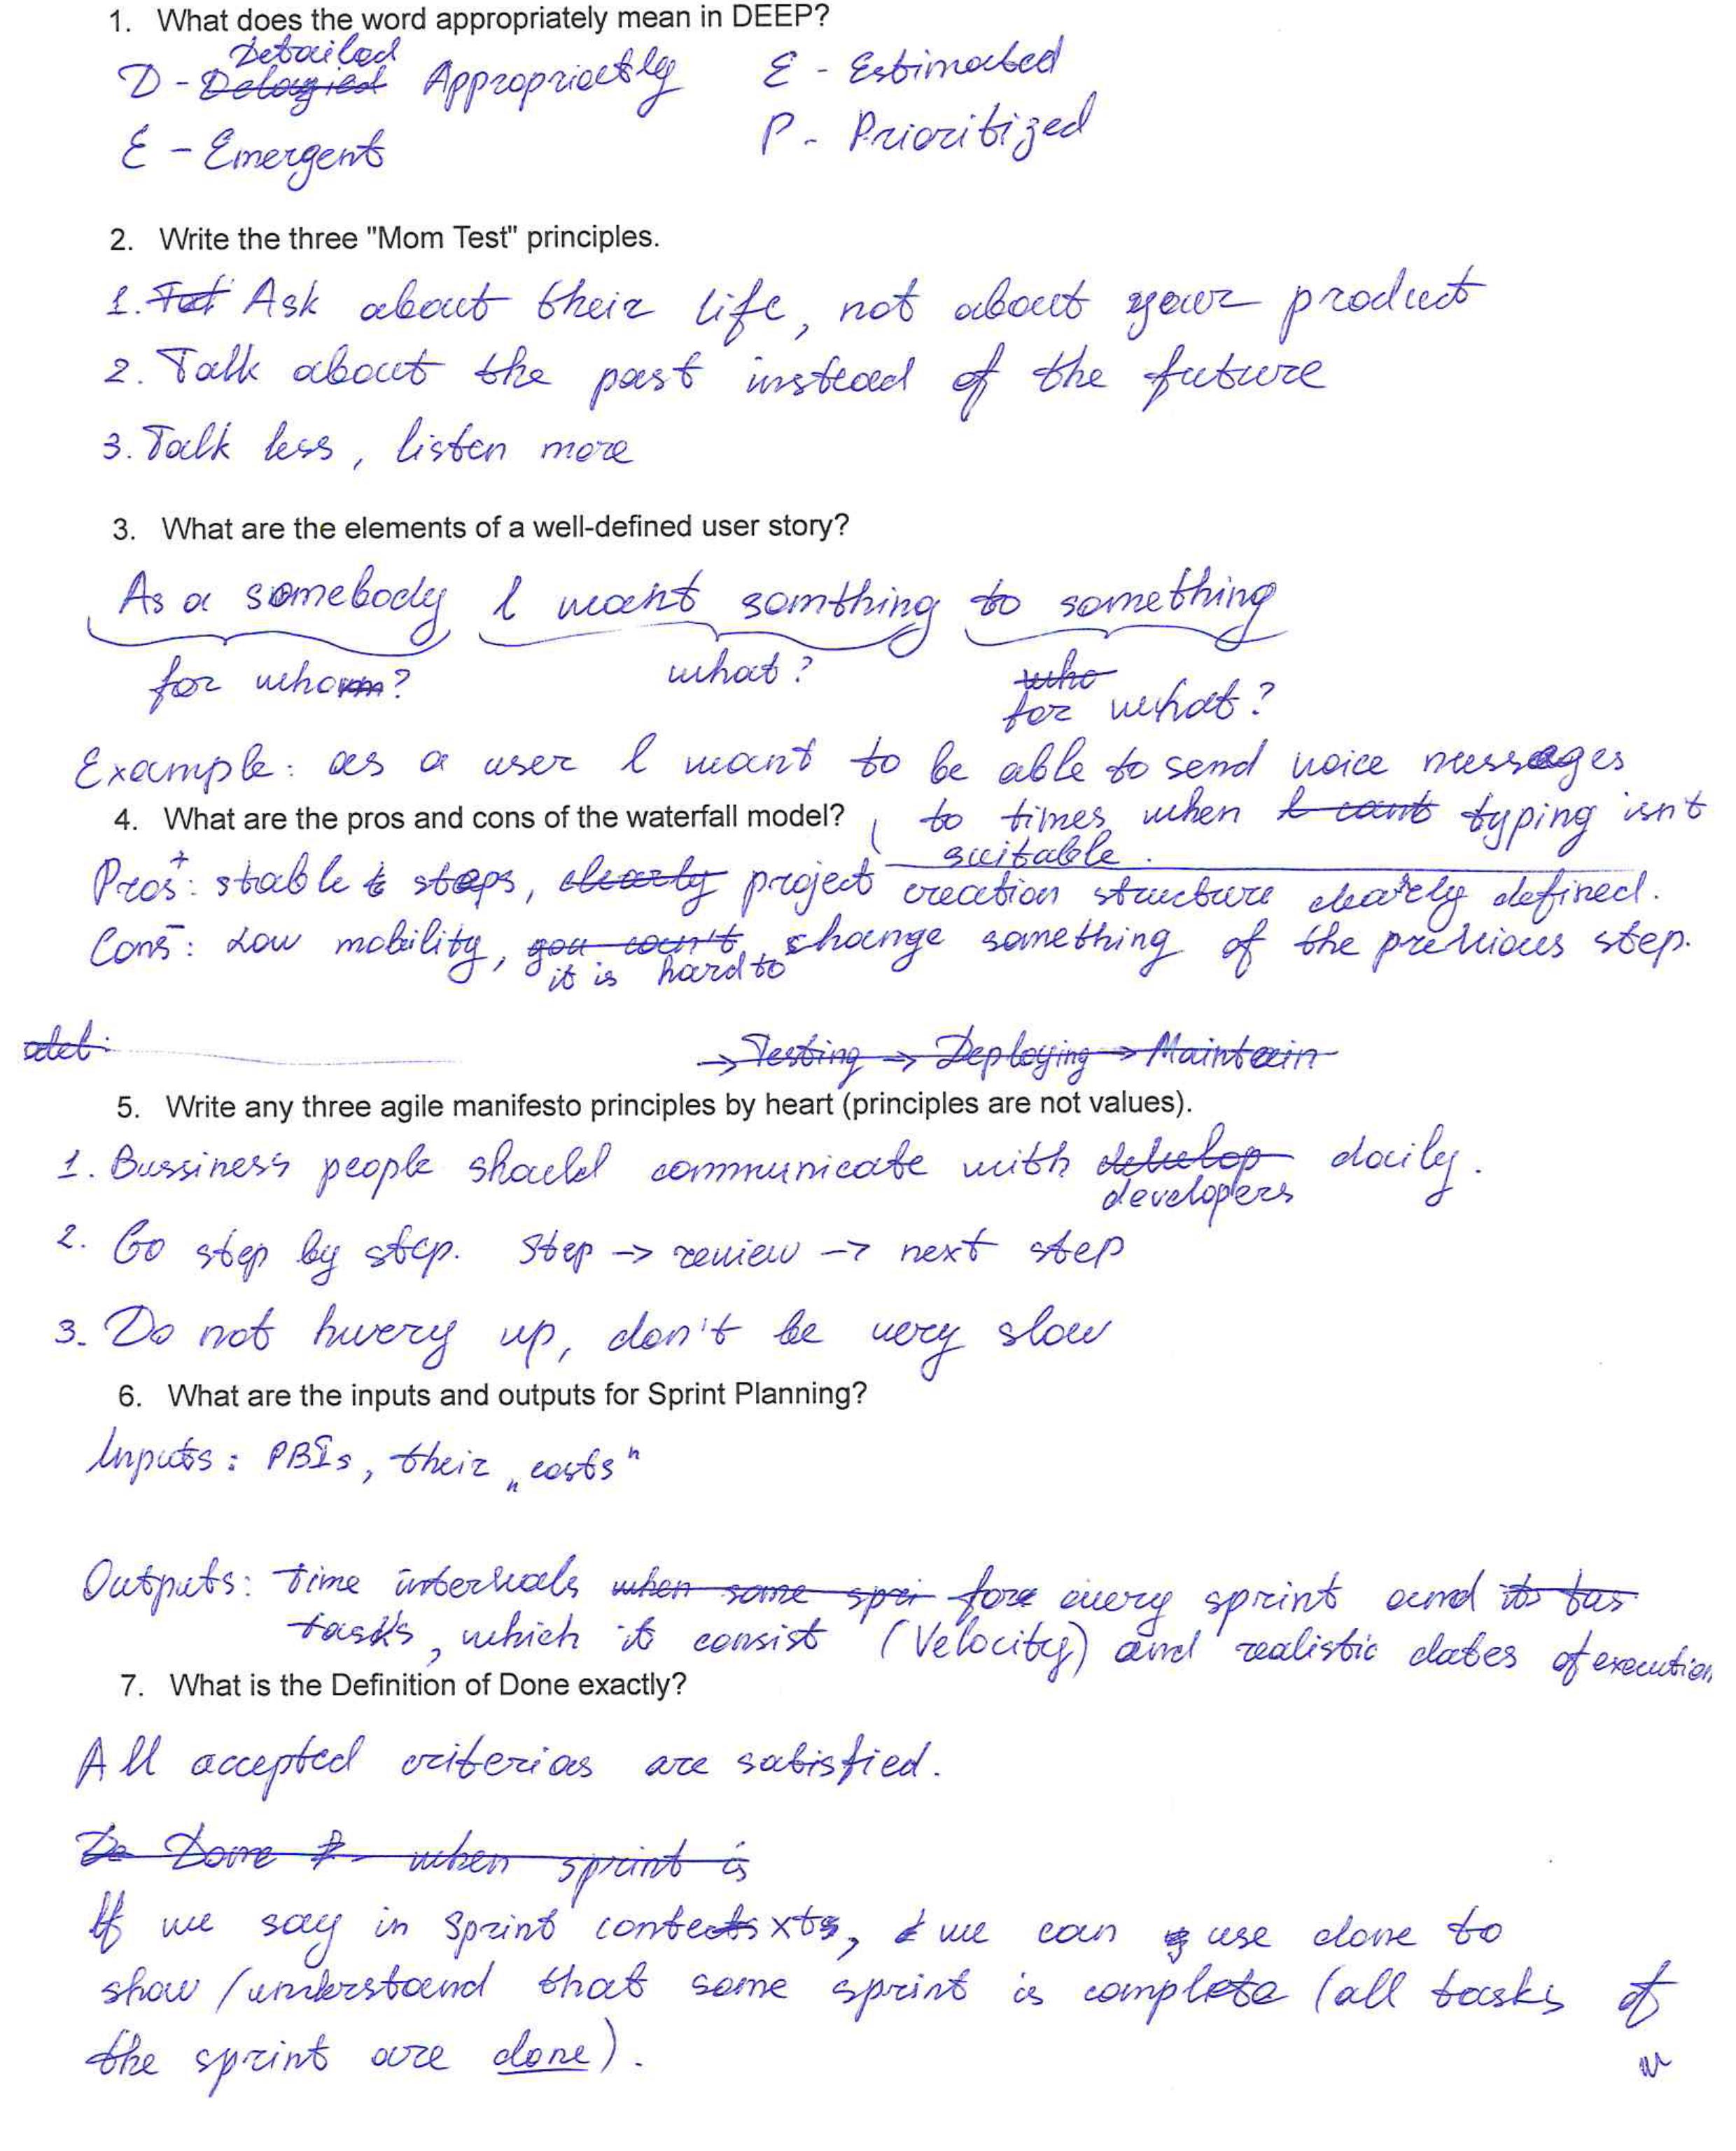 1. What does the word appropriately mean in DEEP?
Detailed
D - Delayied Appropriectly E - Estimated
E - Emergent P - Prioritized
2. Write the three "Mom Test" principles.
1. Tat Ask about their life, not about your product
2. Talk about the past instead of the future
3. Talk less, listen more
3. What are the elements of a well-defined user story?
As a somebody I want somthing to something
for whom? what? who
for what?
Example: as a user I want to be able to send voice messages
4. What are the pros and cons of the waterfall model? to times when I cant typing isn't
suitable.
Pros+: stable steps, clearly project creation structure clearly defined.
Cons-: Low mobility, you can't change something of the previous step.
it is hard to
→ Testing → Deploying → Maintain
5. Write any three agile manifesto principles by heart (principles are not values).
1. Bussiness people should communicate with develop daily.
developers
2. Go step by step. Step → review → next step
3. Do not huery up, don't be very slow
6. What are the inputs and outputs for Sprint Planning?
Inputs: PBIs, their „costs"
Outputs: time intervals when some spri for every sprint and its tas
tasks, which it consist (Velocity) and realistic dates of execution
7. What is the Definition of Done exactly?
All accepted criterias are satisfied.
De Done when sprint is
If we say in Sprint contexts, we can use done to
show / understand that some sprint is complete (all tasks of
the sprint are done).